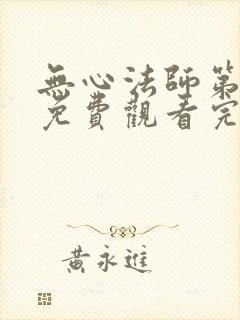 無心法師第
免費觀看完
黃永進